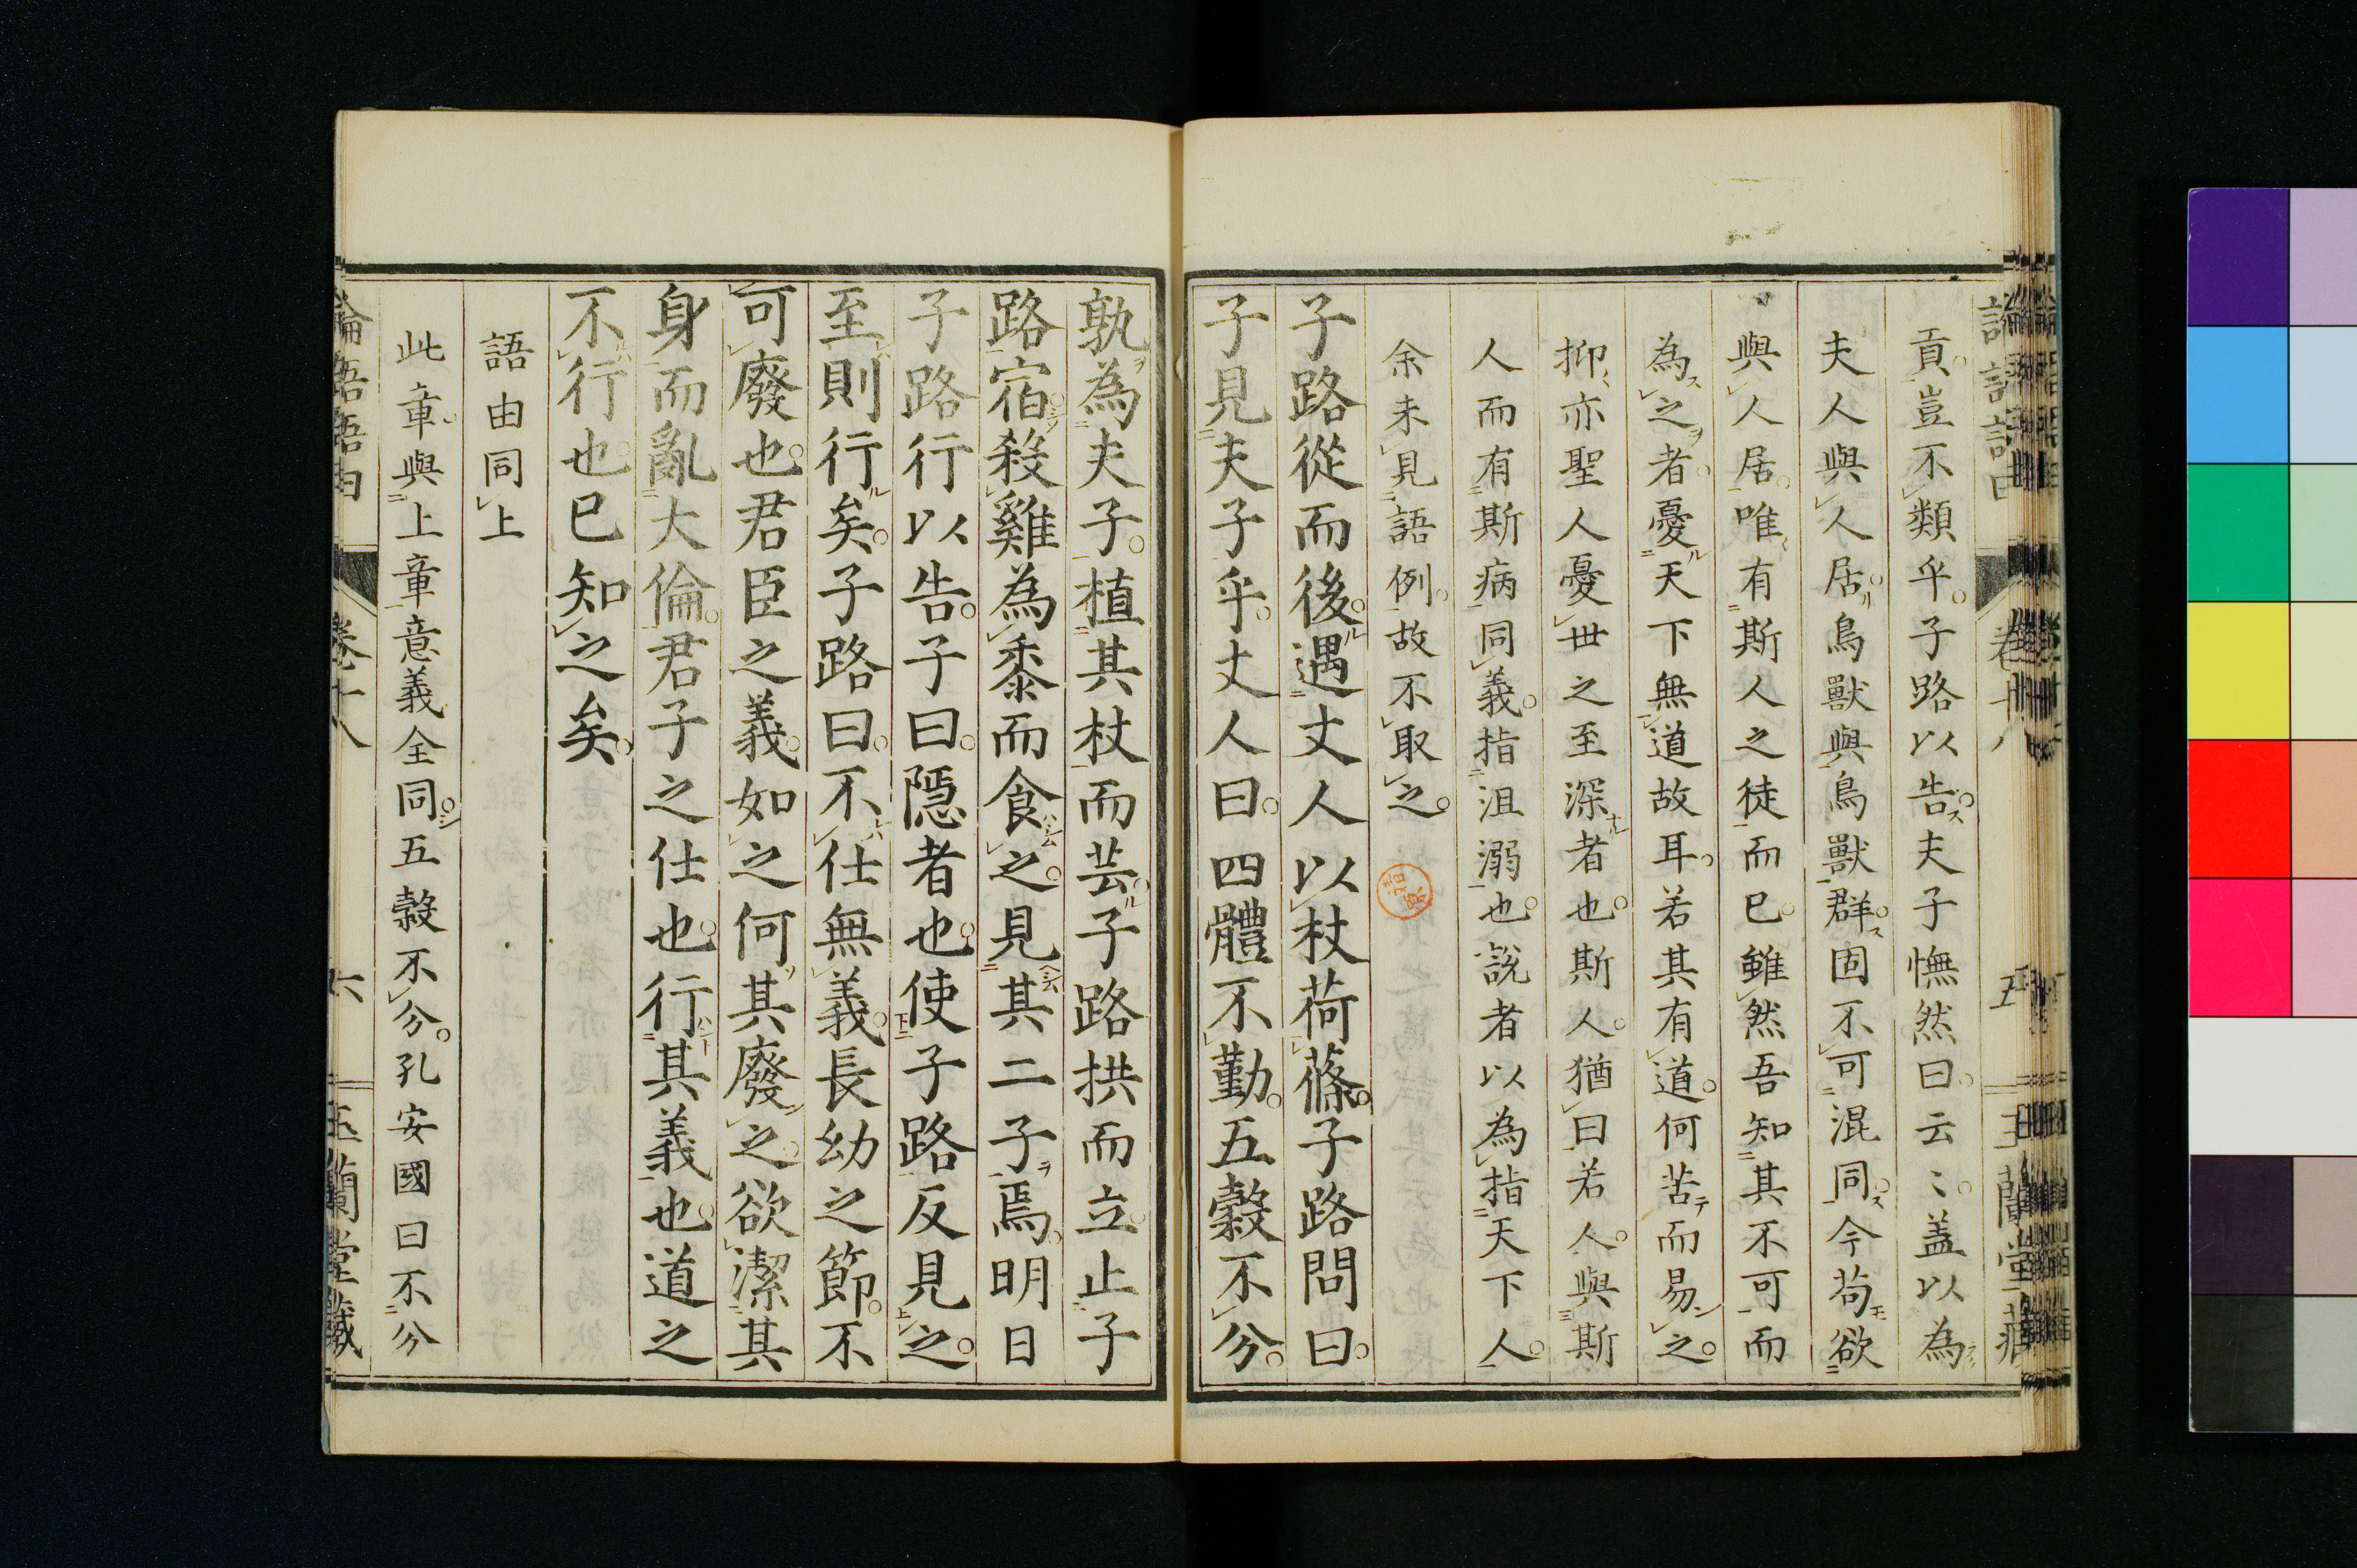 貢豈不類乎子路以告夫子憮然曰云〻盖以為
夫人與人居鳥獸與鳥獸群固不可混同今苟欲
與人居唯有斯人之徒而已雖然吾知其不可而
為之者憂天下無道故耳若其有道何苦而易之
抑亦聖人憂世之至深者也斯人猶曰若人與斯
人而有斯病同義指沮溺也說者以為指天下人
余未見語例故不取之
子路從而後遇丈人以杖荷蓧子路問曰
子見夫子乎丈人曰四體不勤五穀不分
孰為夫子植其杖而芸子路拱而立止子
路宿殺雞為黍而食之見其二子焉明日
子路行以告子曰隱者也使子路反見之
至則行矣子路曰不仕無義長幼之節不
可廢也君臣之義如之何其廢之欲潔其
身而亂大倫君子之仕也行其義也道之
不行也已知之矣
語由同上
此章與上章意義全同五穀不分孔安國曰不分
論語語由 卷十八 六 玉蘭堂藏